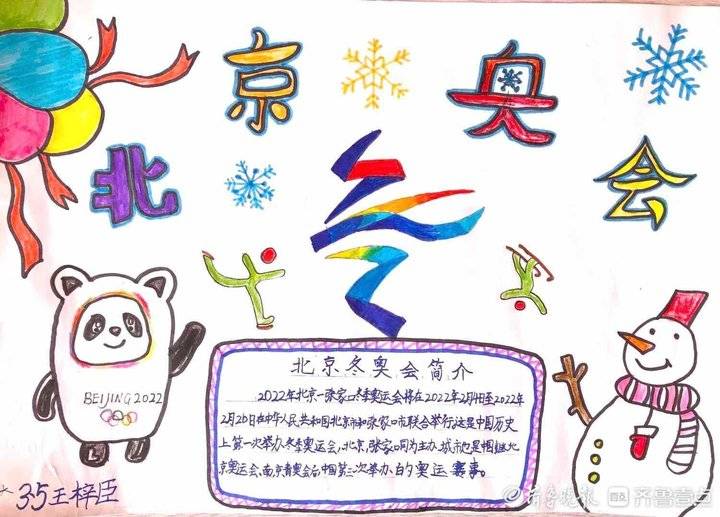 北京
奥会
BEIJING 2022
北京冬奥会简介
2022年北京-张家口冬季奥运会将在2022年2月4日至2022年
2月20日在中华人民共和国北京市和张家口市联合举行,这是中国历史
上第一次举办冬季奥运会,北京,张家口同为主办城市也是中国继北
京奥运会,南京青奥会后,中国第三次举办的奥运赛事。
35王梓臣
齐鲁晚报
齐鲁壹点